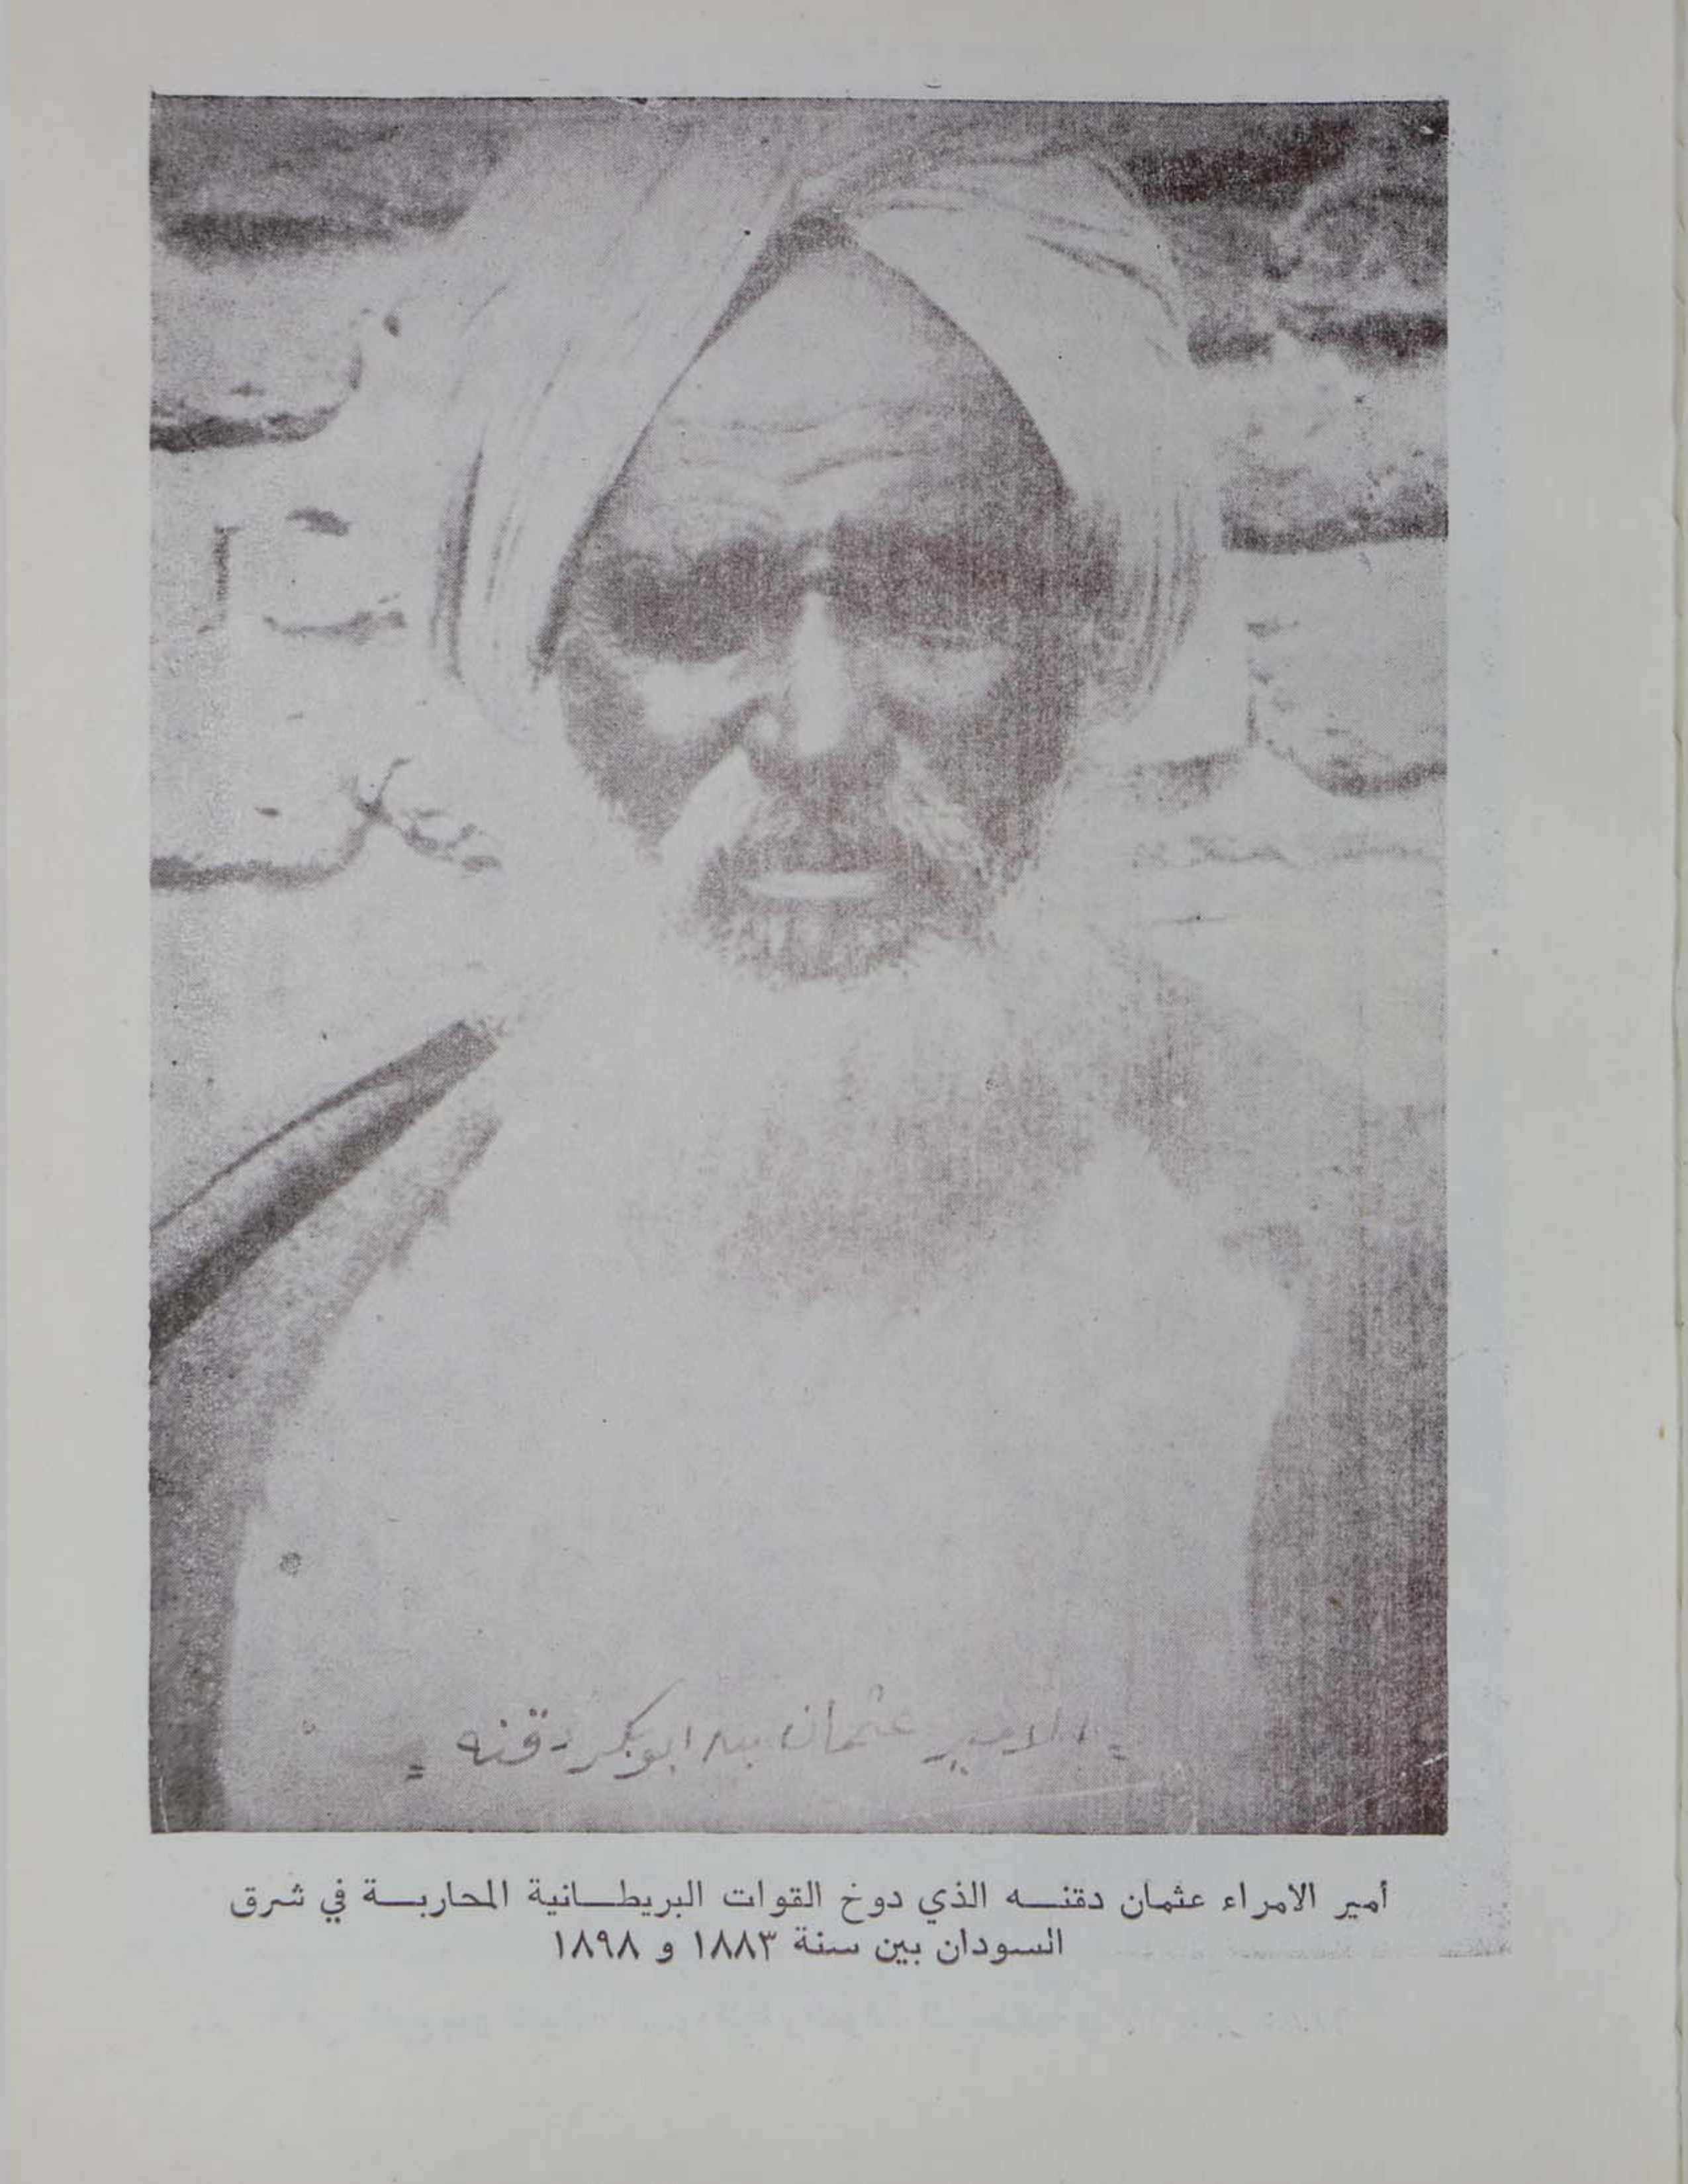 = الامير عثمان بن ابوبكر دقنه =
أمير الامراء عثمان دقنـــه الذي دوخ القوات البريطـــانية المحاربـــة في شرق
السودان بين سنة ١٨٨٣ و ١٨٩٨